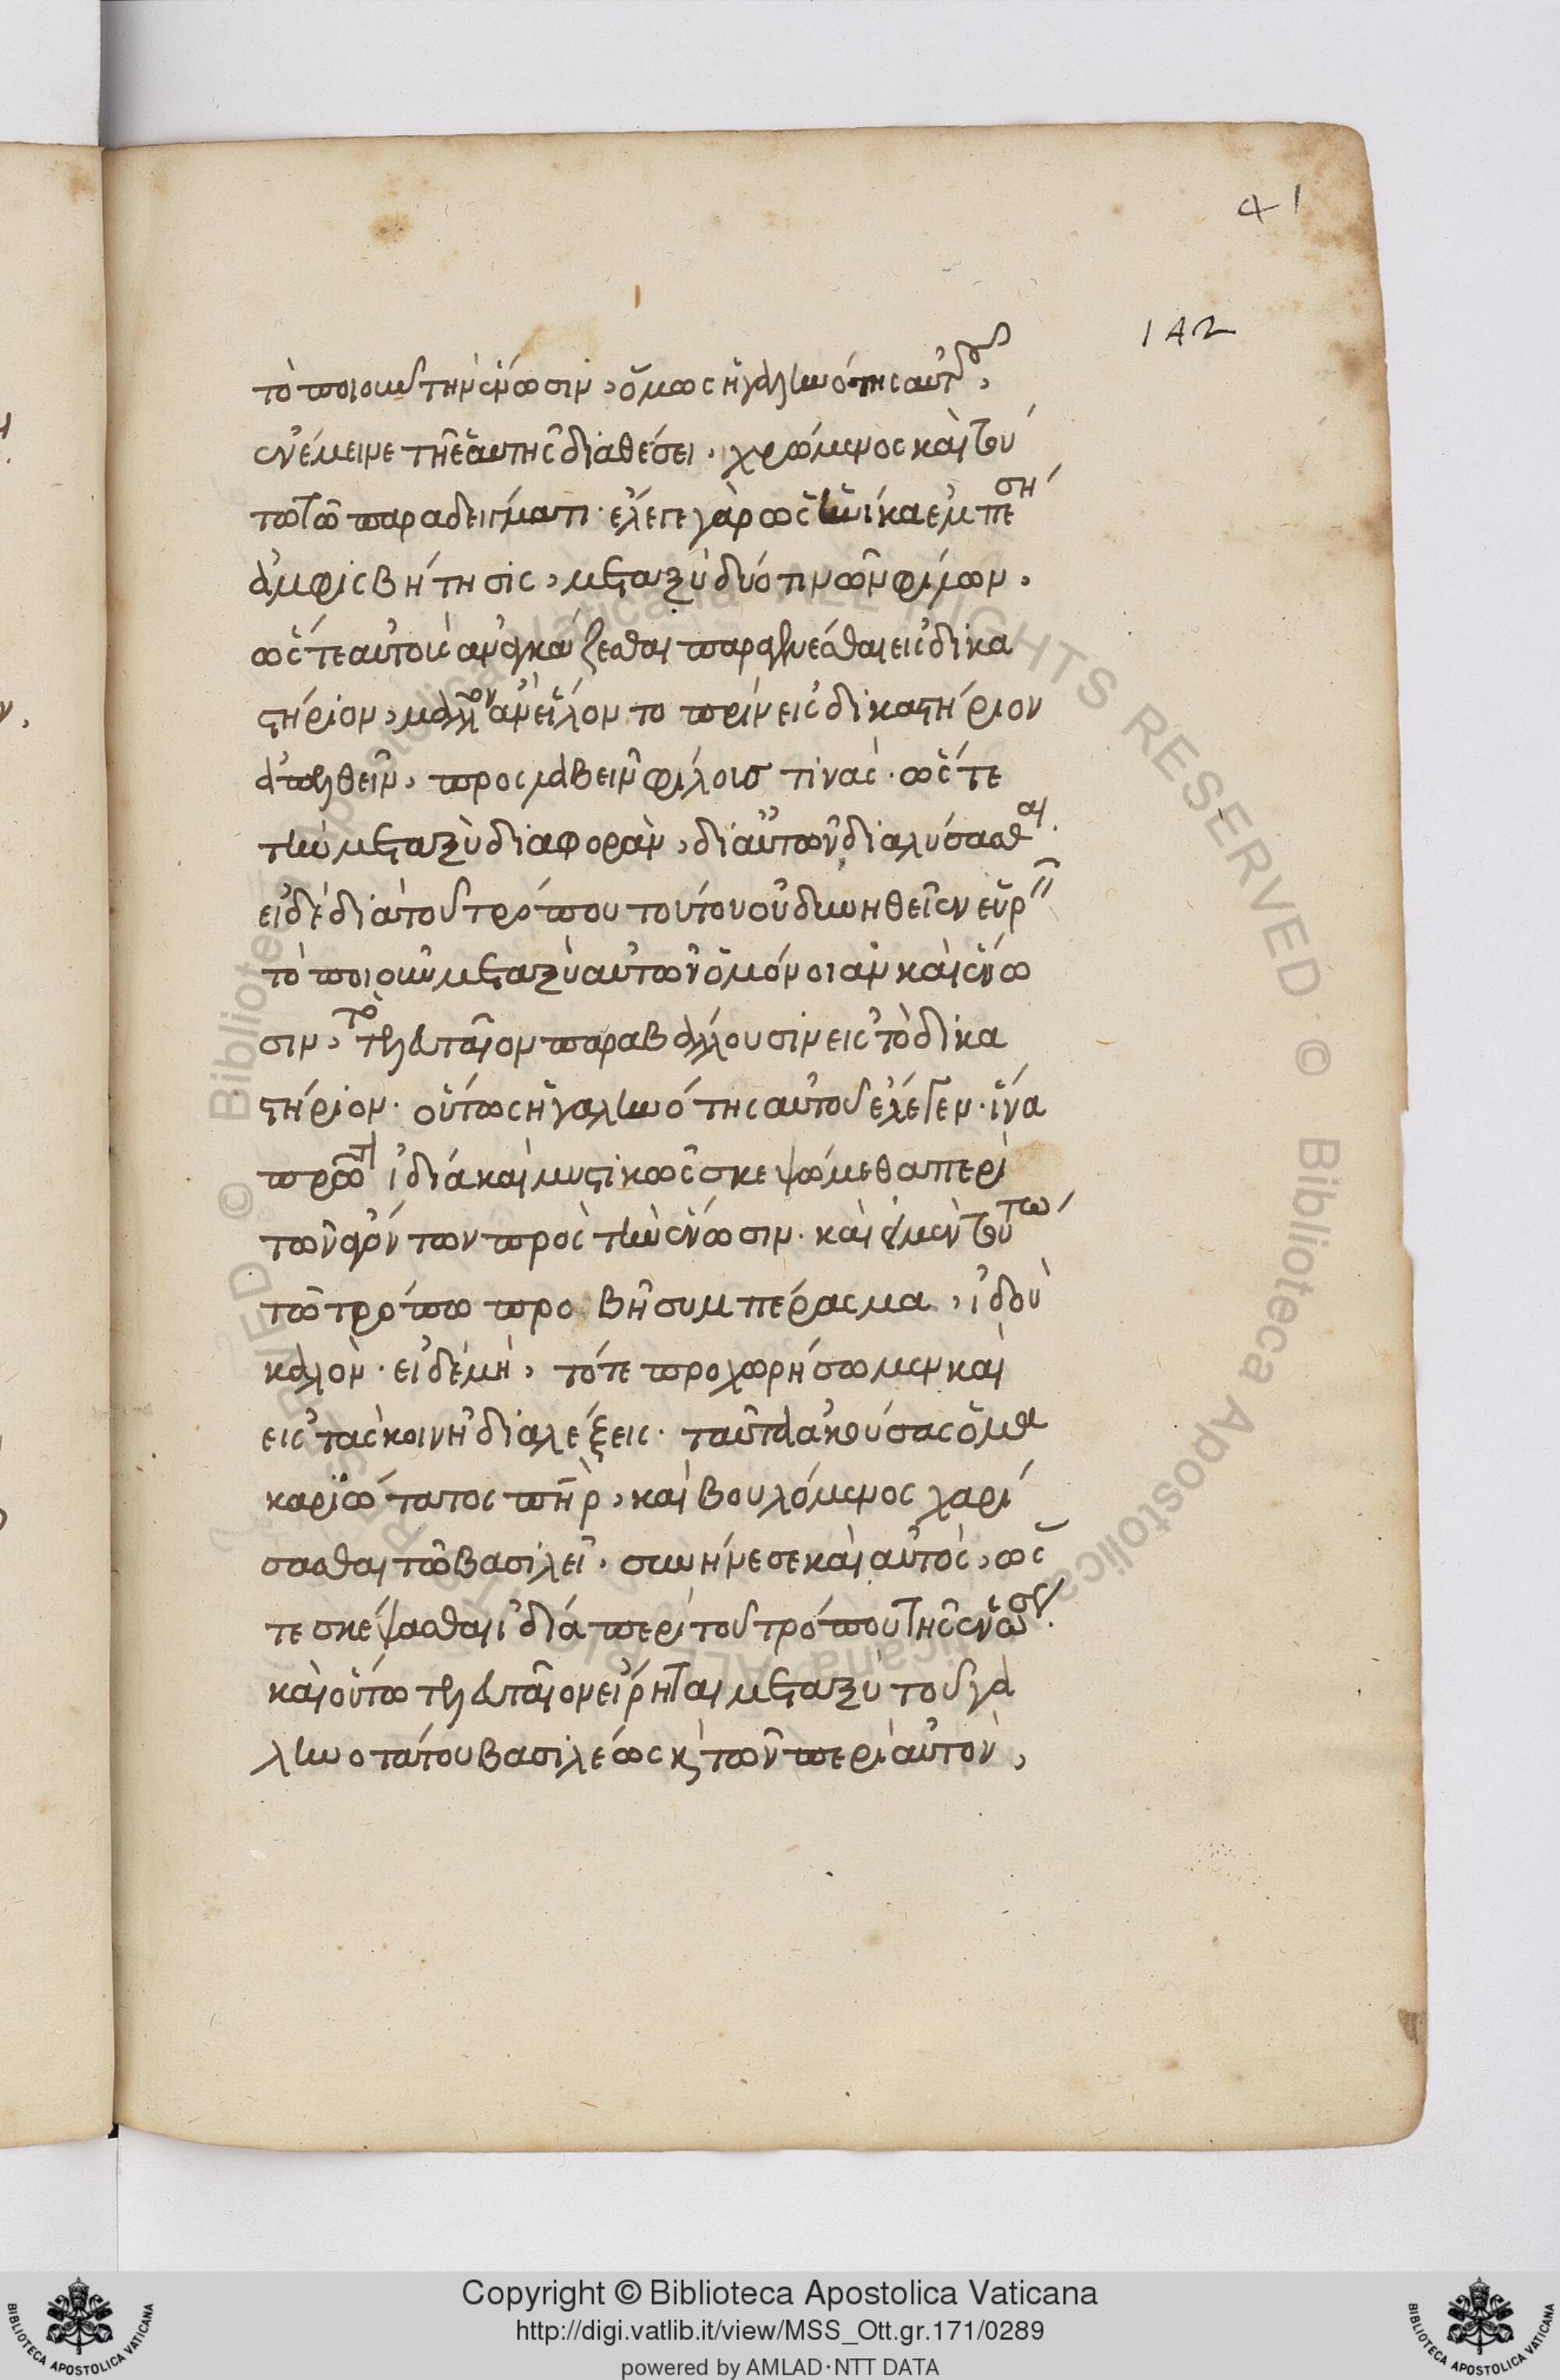 41
142
τὸ ποιοῦν τὴν ἕνωσιν, ὅμως ἡ γαληνότης αὐτοῦ,
ἐνέμεινε τῆ ἑαυτῆς διαθέσει. χρώμενος καὶ τού
τω τῶ παραδείγματι· ἔλεγε γὰρ ὡς ἡνίκα ἐμπέση
ἀμφισβήτησις, μεταξὺ δύο τινῶν φίλων,
ὥστε αὐτοὺς ἀναγκάζεσθαι παραγενέσθαι εἰς δικα
στήριον, μᾶλλον ἂν εἵλοντο πρὶν εἰς δικαστήριον
ἀπελθεῖν, προσλαβεῖν φίλοις τινάς· ὥστε
τὴν μεταξὺ διαφορὰν, δι' αὐτῶν διαλύσασθαι.
εἰ δὲ διὰ τοῦ τρόπου τούτου οὐ δυνηθεῖεν εὑρεῖν
τὸ ποιοῦν μεταξὺ αὐτῶν ὁμόνοιαν καὶ ἕνω
σιν, τὸ τελευταῖον παραβάλλουσιν εἰς τὸ δικα
στήριον· οὕτως ἡ γαληνότης αὐτοῦ ἔλεγεν· ἵνα
πρῶτον ἰδία καὶ μυστικῶς σκεψώμεθα περὶ
τῶν ἀγόντων πρὸς τὴν ἕνωσιν· καὶ εἰ μὲν τούτω
τῶ τρόπω προβῆ συμπέρασμα, ἰδοὺ
καλόν· εἰ δὲ μὴ, τότε προχωρήσωμεν καὶ
εἰς τὰς κοινὴ διαλέξεις· ταῦτα ἀκούσας ὁ μα
καριώτατος πῆρ, καὶ βουλόμενος χαρί
σασθαι τῶ βασιλεῖ, συνήνεσε καὶ αὐτὸς, ὥσ
τε σκέψασθαι ἰδία περὶ τοῦ τρόπου τῆς ἑνώσεως.
καὶ οὕτω τελευταῖον εἴρηται μεταξὺ τοῦ γα
ληνοτάτου βασιλέως κ τῶν περὶ αὐτὸν,
© Biblioteca Apostolica Vaticana ALL RIGHTS RESERVED
Copyright © Biblioteca Apostolica Vaticana
http://digi.vatlib.it/view/MSS_Ott.gr.171/0289
powered by AMLAD·NTT DATA
BIBLIOTECA APOSTOLICA VATICANA
BIBLIOTECA APOSTOLICA VATICANA